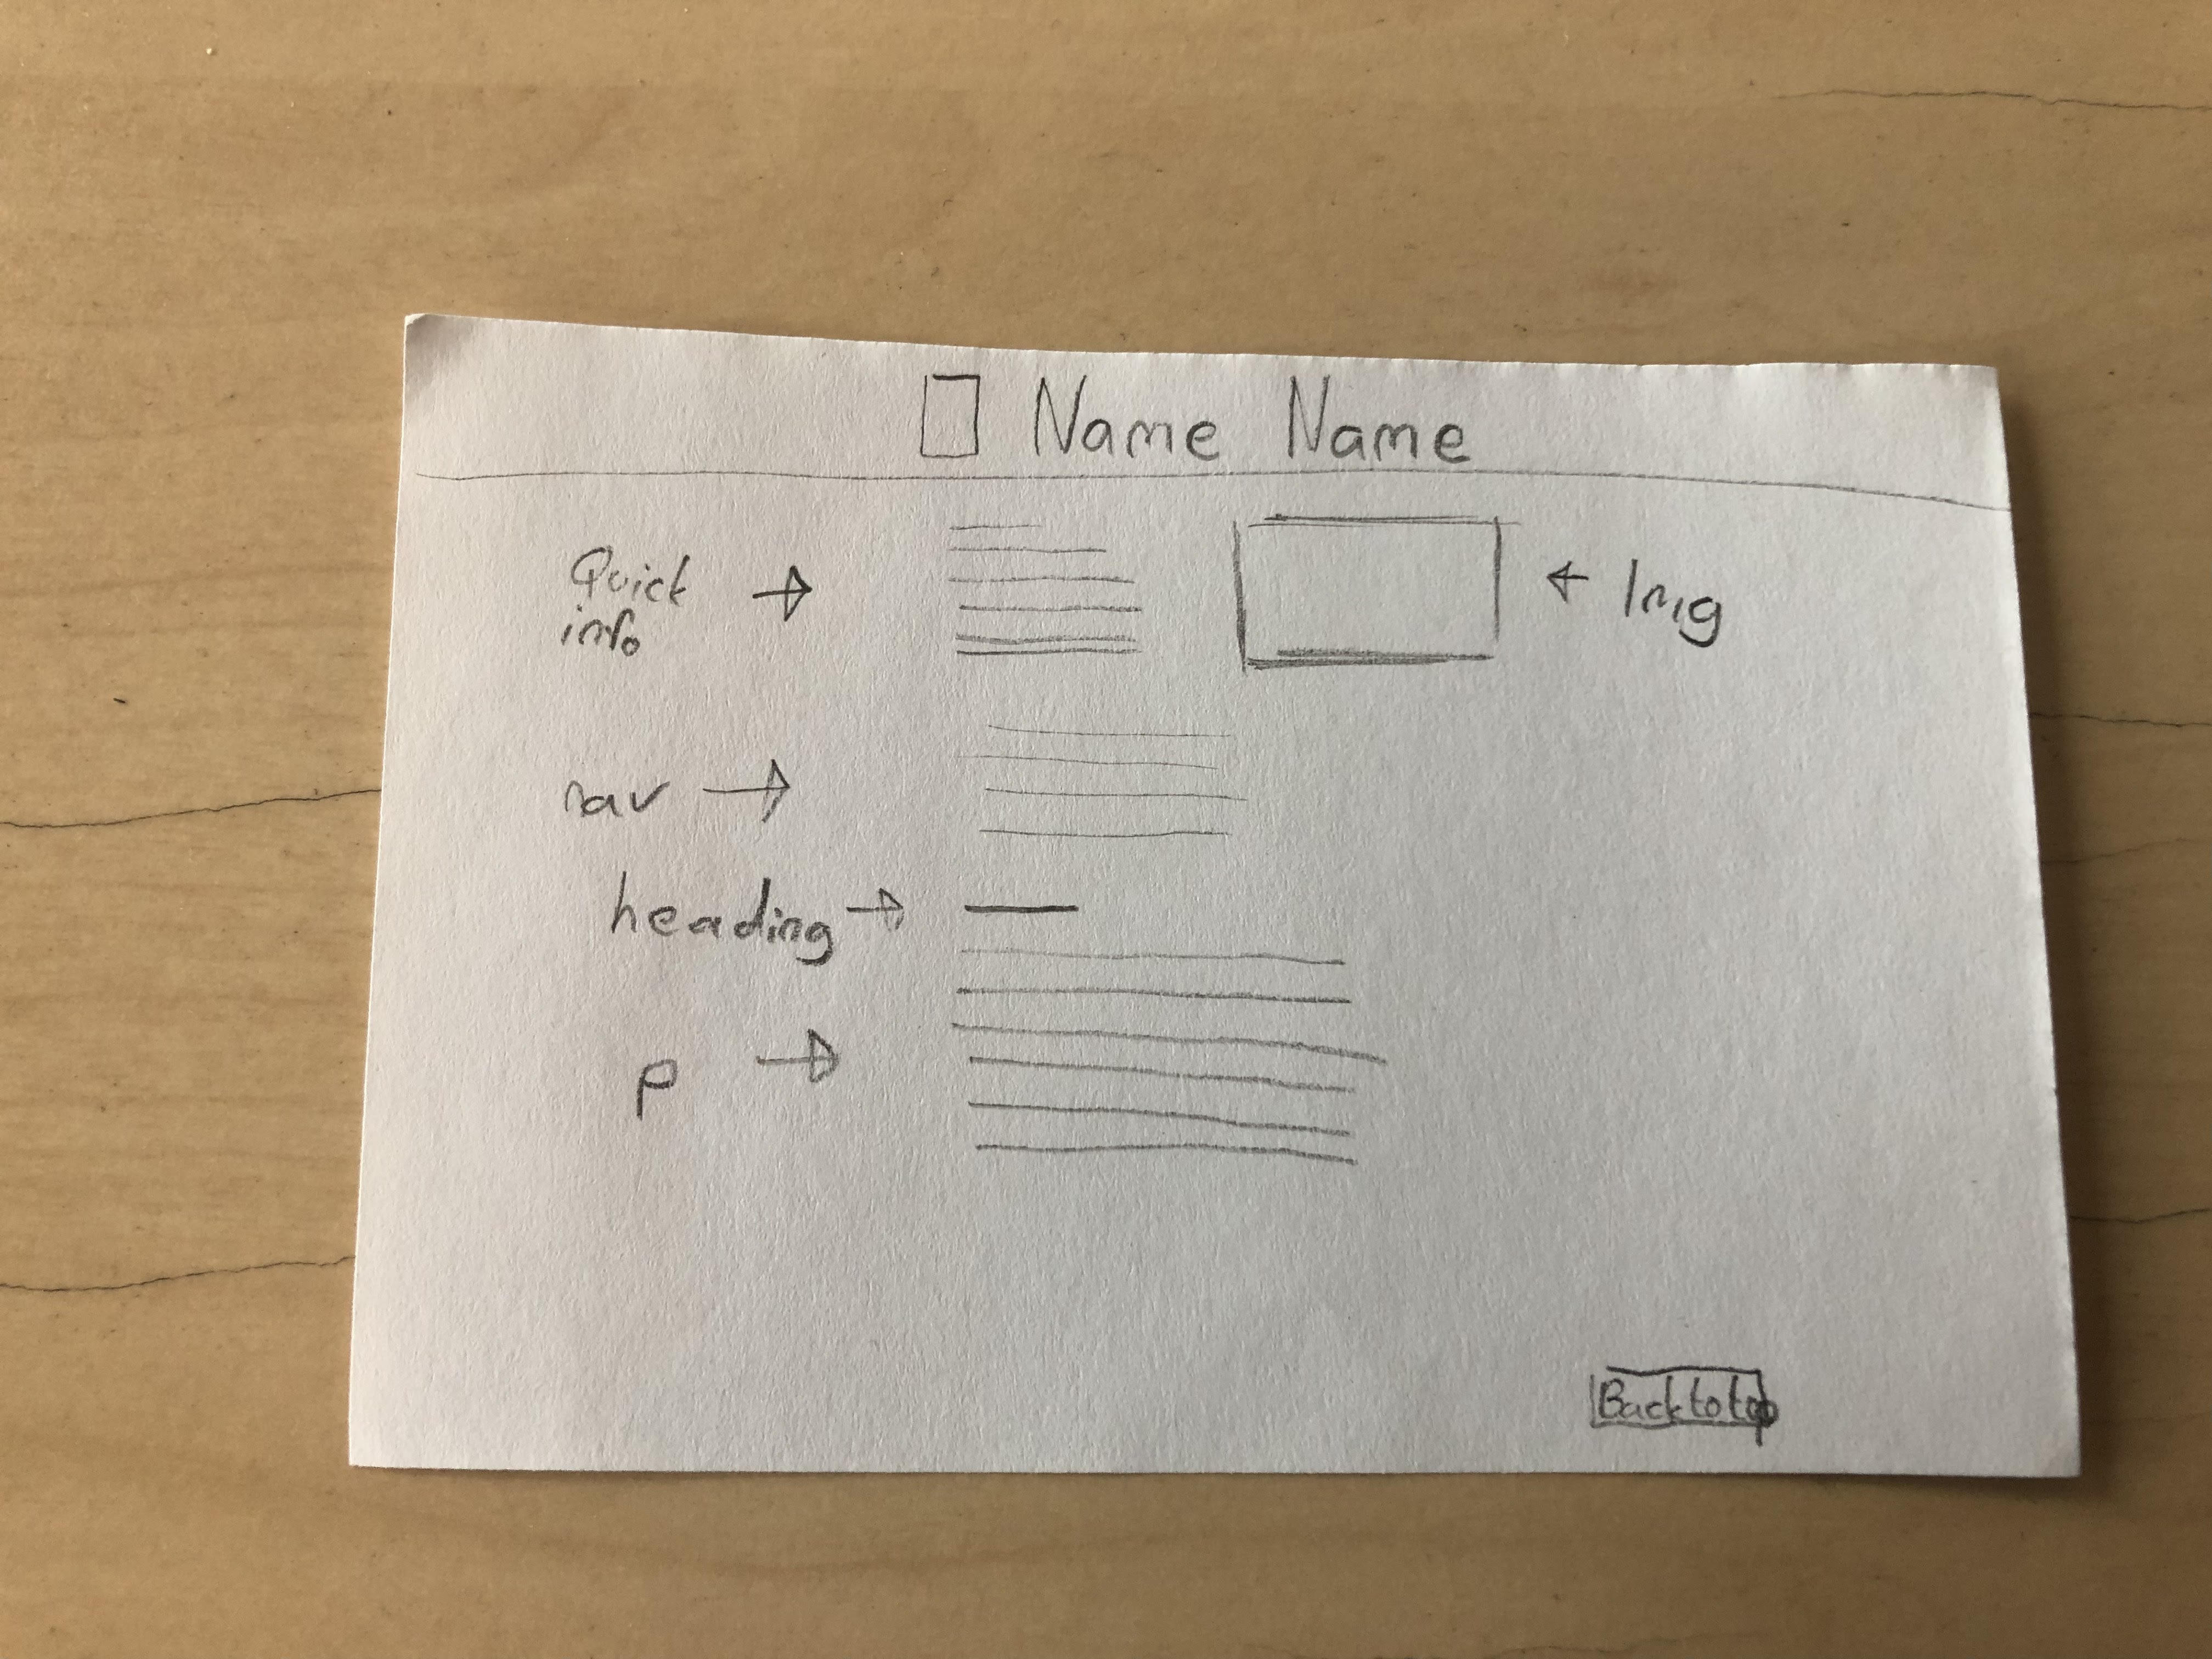 Name Name
Quick
info
Img
nav
heading
p
Back to top